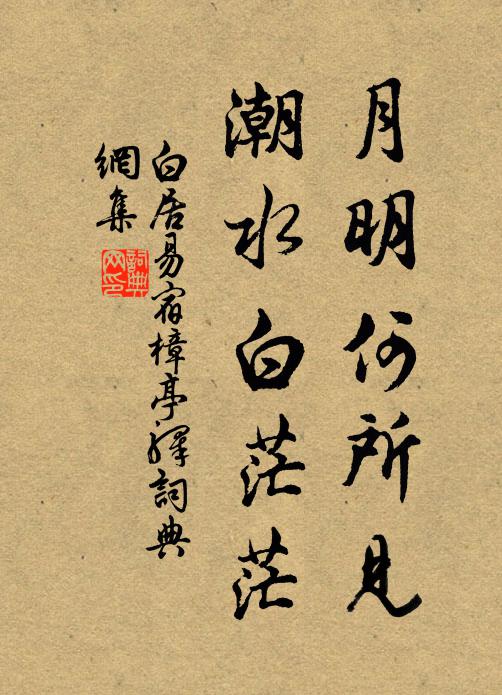 月明何所見
潮水白茫茫
白居易宿樟亭驛詞典
網集
詞典
网印